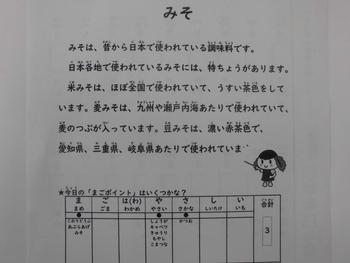 みそ
みそは、昔から日本で使われている調味料です。
日本各地で使われているみそには、特ちょうがあります。
米みそは、ほぼ全国で使われていて、うすい茶色をして
います。麦みそは、九州や瀬戸内海あたりで使われていて、
麦のつぶが入っています。豆みそは、濃い赤茶色で、
愛知県、三重県、岐阜県あたりで使われていま
★今日の「まごポイント」はいくつかな？
ま ご は(わ) や さ し い 合計
まめ ごま わかめ やさい さかな しいたけ いも
● ● ●
こおりどうふ しょうが かつお 3
あぶらあげ キャベツ
みそ きゅうり
もやし
こまつな